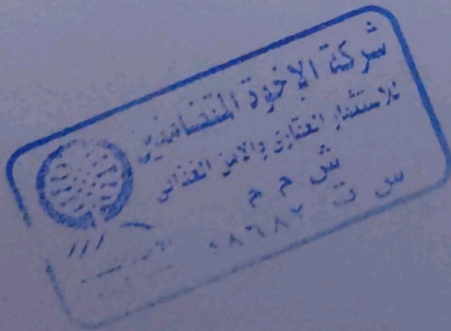 شركة الإخوة المتضامنين
للاستثمار العقارى والامن الغذائى
ش م م
س ت ٠٨٦٨٢